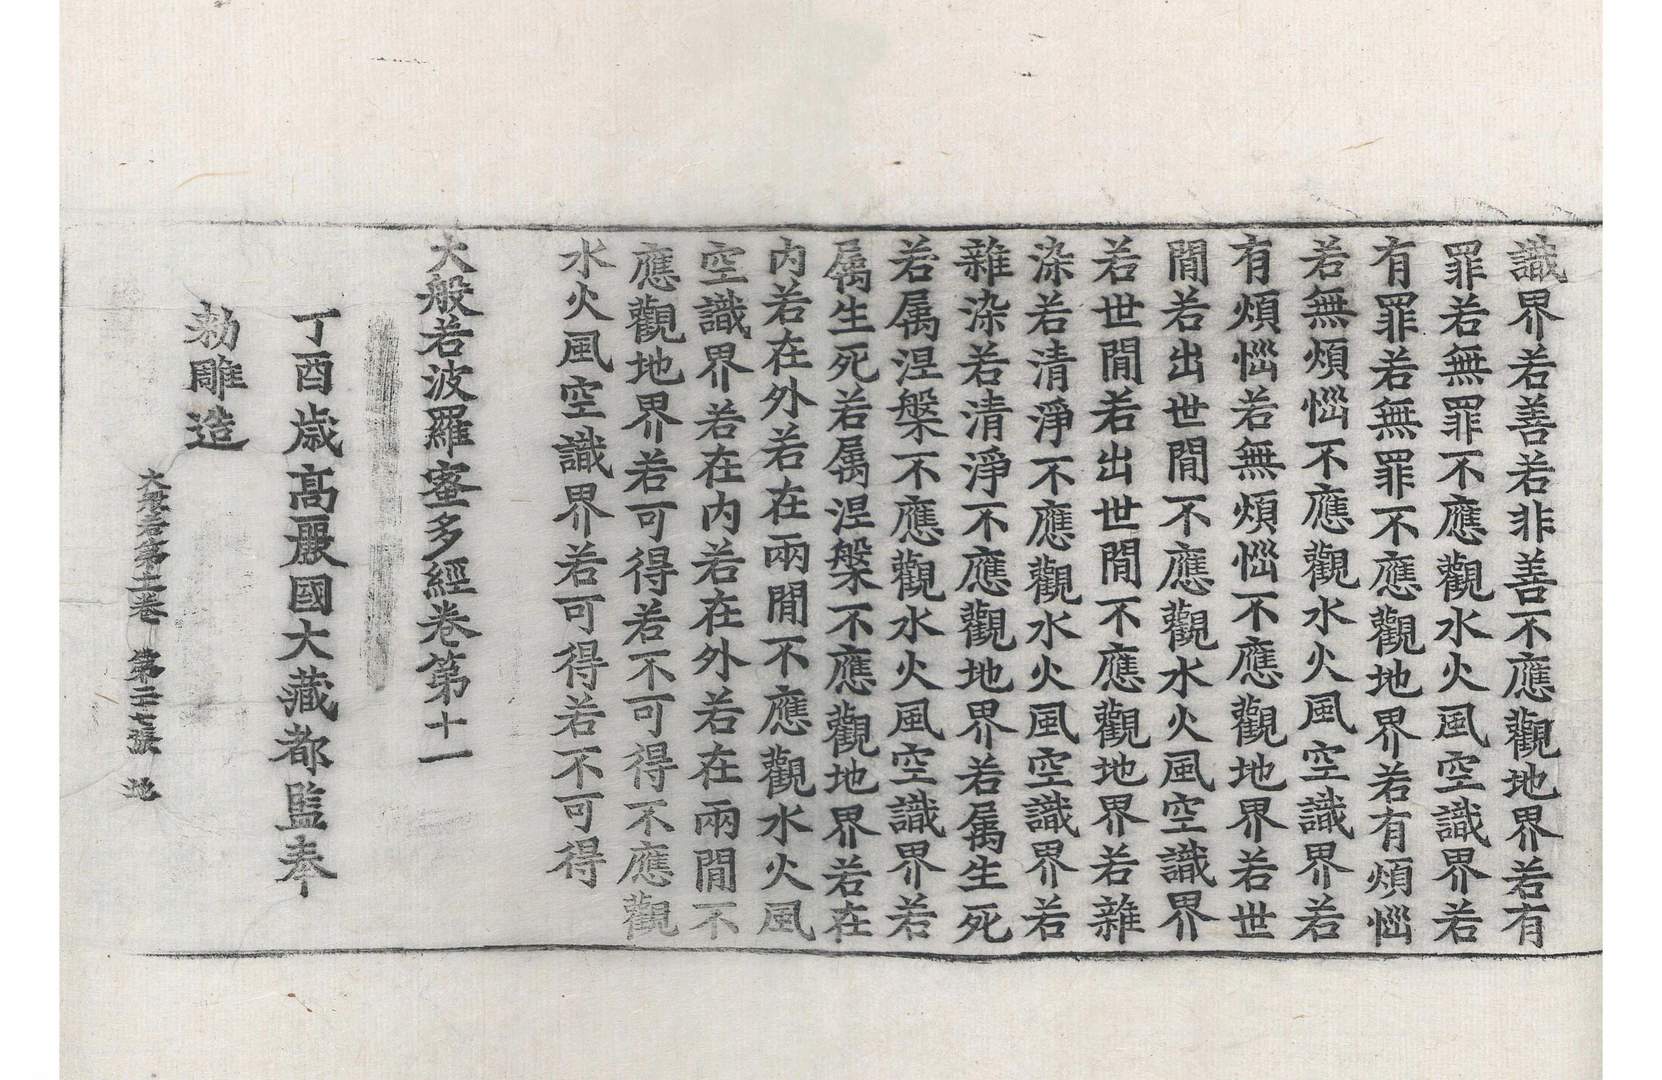 識界若善若非善不應觀地界若有
罪若無罪不應觀水火風空識界若
有罪若無罪不應觀地界若有煩惱
若無煩惱不應觀水火風空識界若
有煩惱若無煩惱不應觀地界若世
間若出世間不應觀水火風空識界
若世間若出世間不應觀地界若雜
染若清淨不應觀水火風空識界若
雜染若清淨不應觀地界若属生死
若属涅槃不應觀水火風空識界若
属生死若属涅槃不應觀地界若在
內若在外若在兩間不應觀水火風
空識界若在內若在外若在兩間不
應觀地界若可得若不可得不應觀
水火風空識界若可得若不可得
大般若波羅蜜多經卷第十一
丁酉歲高麗國大藏都監奉
勅雕造
大般若第十一卷 第二十七張 地